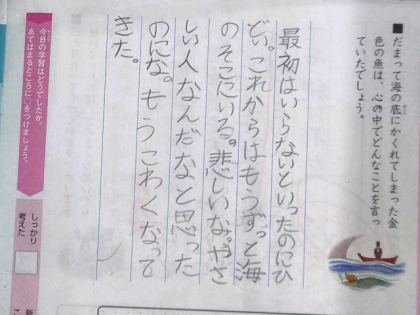 ■だまって海の底にかくれてしまった金
色の魚は、心の中でどんなことを言っ
ていたでしょう。
最初はいらないといったのにひ
どい。これからはもうずっと海
のそこにいる。悲しいな。やさ
しい人なんだなと思った
のにな。もうこわくなって
きた。
今日の学習はどうでしたか。
あてはまるところに○をつけましょう。
しっかり
考えた